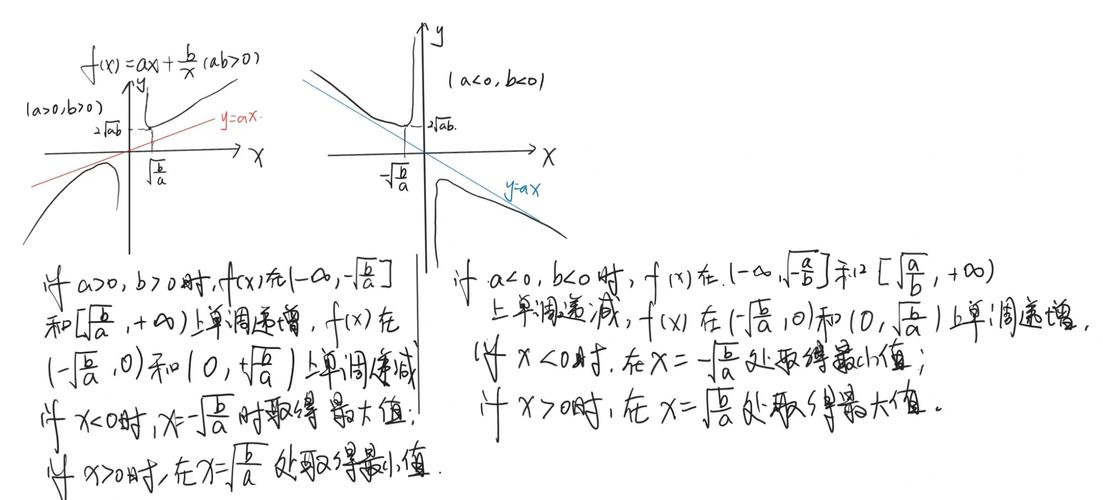 f(x)=ax+b/x (ab>0)
(a>0,b>0)
y
2√ab
y=ax.
x
√(b/a)
y
(a<0,b<0)
2√ab.
x
-√(b/a)
y=ax
当 a>0, b>0时, f(x)在(-∞, -√(b/a)]
和[√(b/a), +∞)上单调递增, f(x)在
(-√(b/a), 0)和(0, +√(b/a))上单调递减
当 x<0时, x=-√(b/a)时取得最大值;
当 x>0时, 在x=√(b/a)处取得最小值.
当 a<0, b<0时, f(x)在(-∞, √(-a/b)]和[√(a/b), +∞)
上单调递减, f(x)在(-√(b/a), 0)和(0, √(b/a))上单调递增,
当 x<0时, 在x=-√(b/a)处取得最小值;
当 x>0时, 在x=√(b/a)处取得最大值.